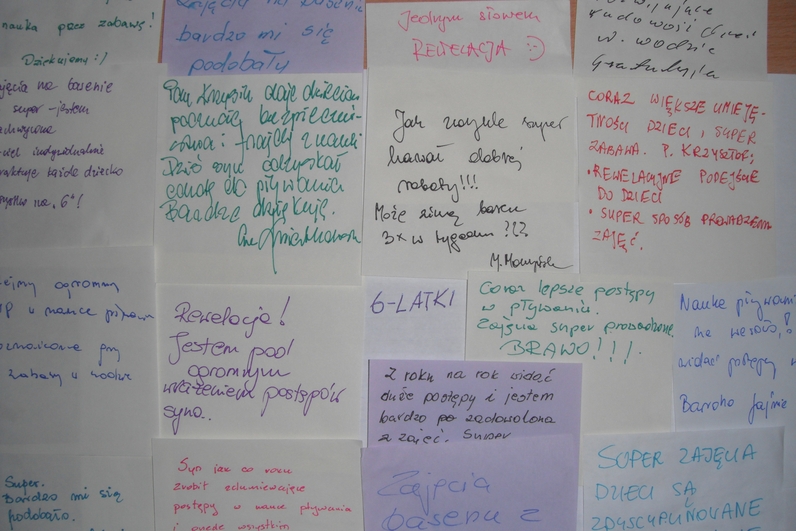 nauka przez zabawę!
Dziękujemy :)
zajęcia na basenie
bardzo mi się
podobały
Jednym słowem
REWELACJA :-)
w wodzie
Gratulacje
zajęcia na basenie
super - jestem
zachwycona
indywidualnie
każde dziecko
wszystko na "6"!
Pan Krzysztof daje dzieciom
poczucie bezpieczeń-
stwa i frajdę z nauki
Dziś syn odzyskał
ochotę do pływania
Bardzo dziękuję.
Jak zwykle super
kawał dobrej
roboty!!!
Może zimą basen
3x w tygodniu ???
CORAZ WIĘKSZE UMIEJĘ-
TNOŚCI DZIECI I SUPER
ZABAWA. P. KRZYSZTOF:
• REWELACYJNE PODEJŚCIE
DO DZIECI
• SUPER SPOSÓB PROWADZENIA
ZAJĘĆ.
ogromny
w nauce pływania
zabawy w wodzie
Rewelacja!
Jestem pod
ogromnym
wrażeniem postępów
syna..
6-LATKI
Coraz lepsze postępy
w pływaniu.
Zajęcia super prowadzone.
BRAWO!!!
Nauka pływania
na wesoło!
widać postępy
Bardzo fajnie
Z roku na rok widać
duże postępy i jestem
bardzo zadowolona
z zajęć. Super
Super.
Bardzo mi się
podobało.
Syn jak co roku
zrobił zdumiewające
postępy w nauce pływania
i przede wszystkim
Zajęcia
basenu z
SUPER ZAJĘCIA
DZIECI SĄ
ZDYSCYPLINOWANE